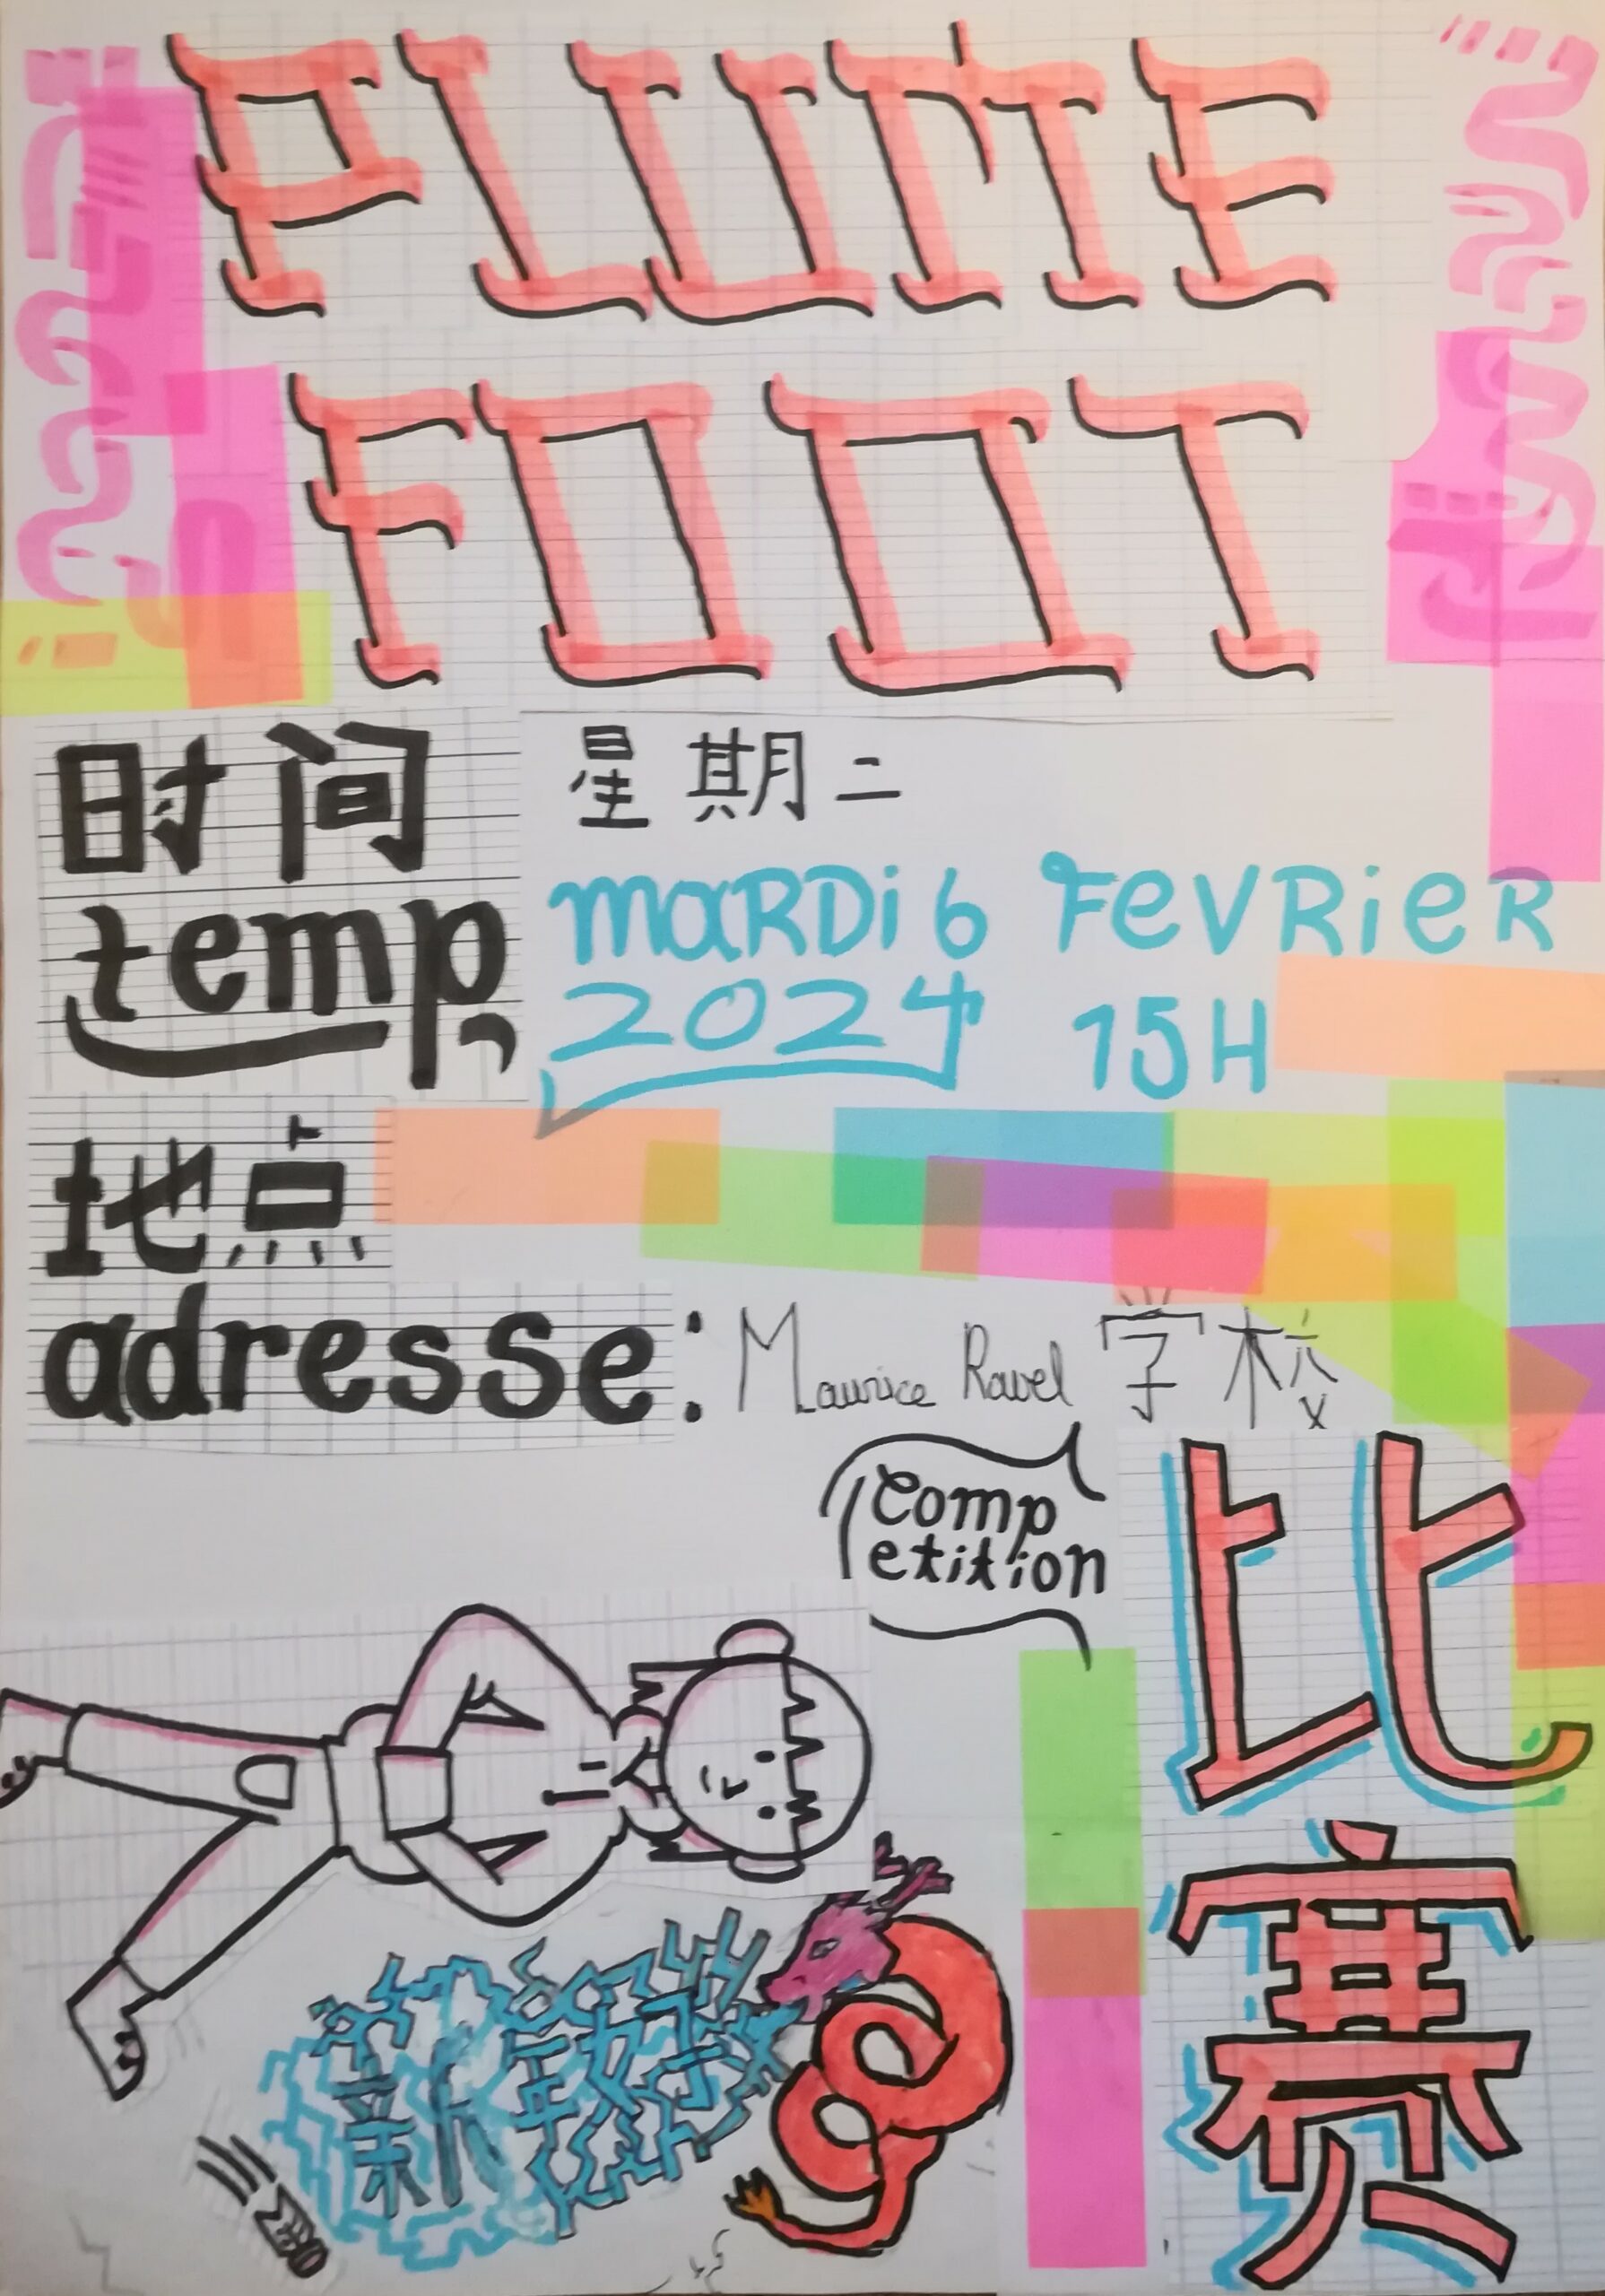 PLUME
FOOT
时间
temp,
星期二
MARDi 6 FEVRieR
2024 15H
地点
adresse:
Maurice Ravel 学校
Comp
etition
比
赛